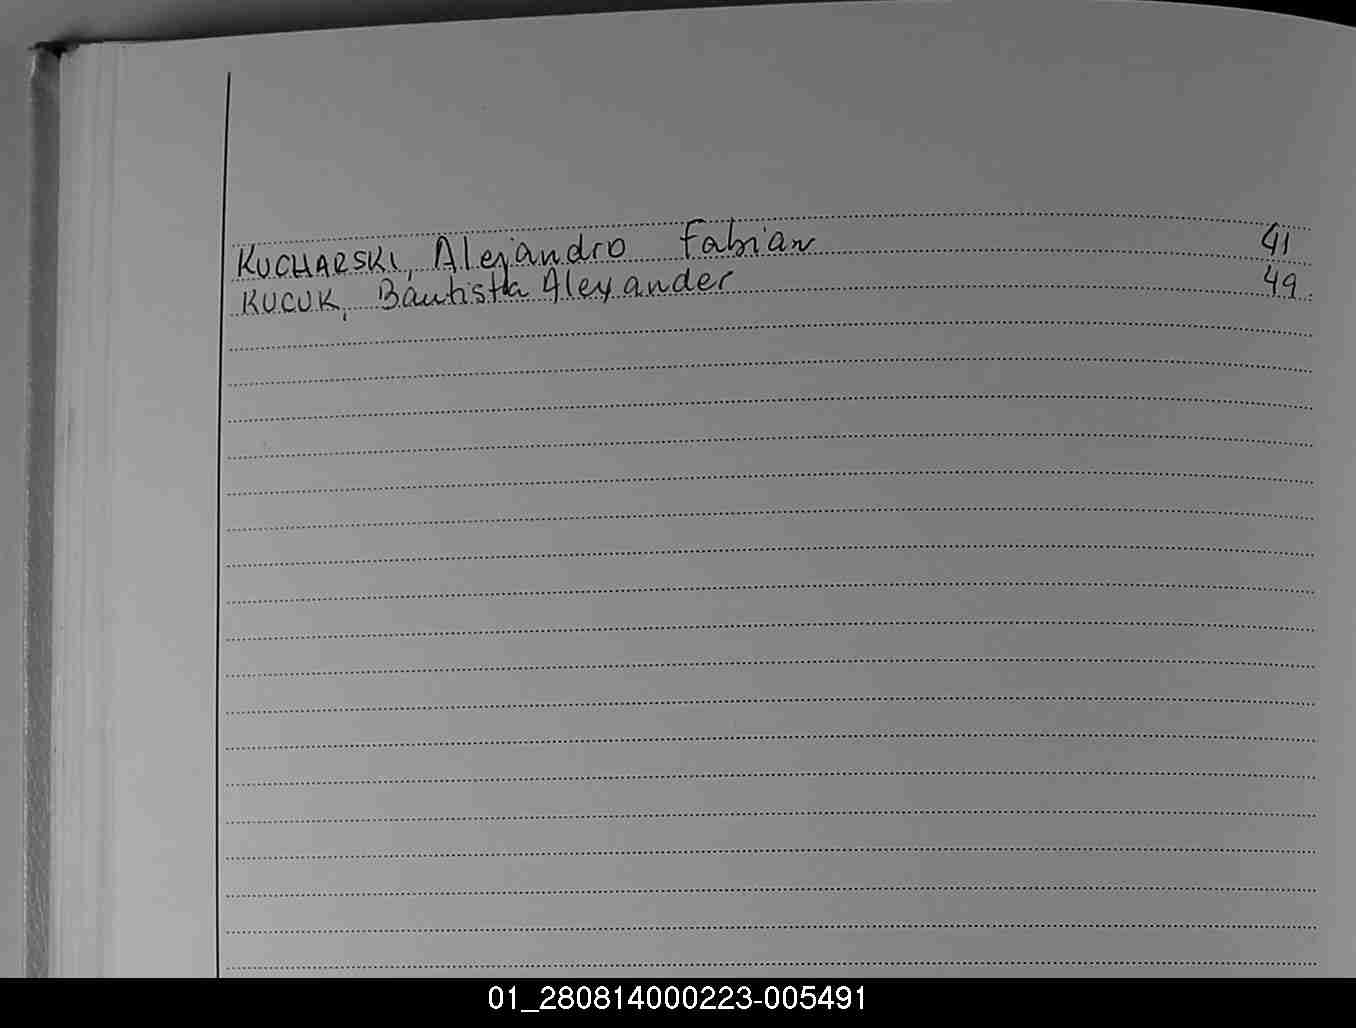 KUCHARSKI, Alejandro Fabian 41
KUCUK, Bautista Alexander 49
01_280814000223-005491